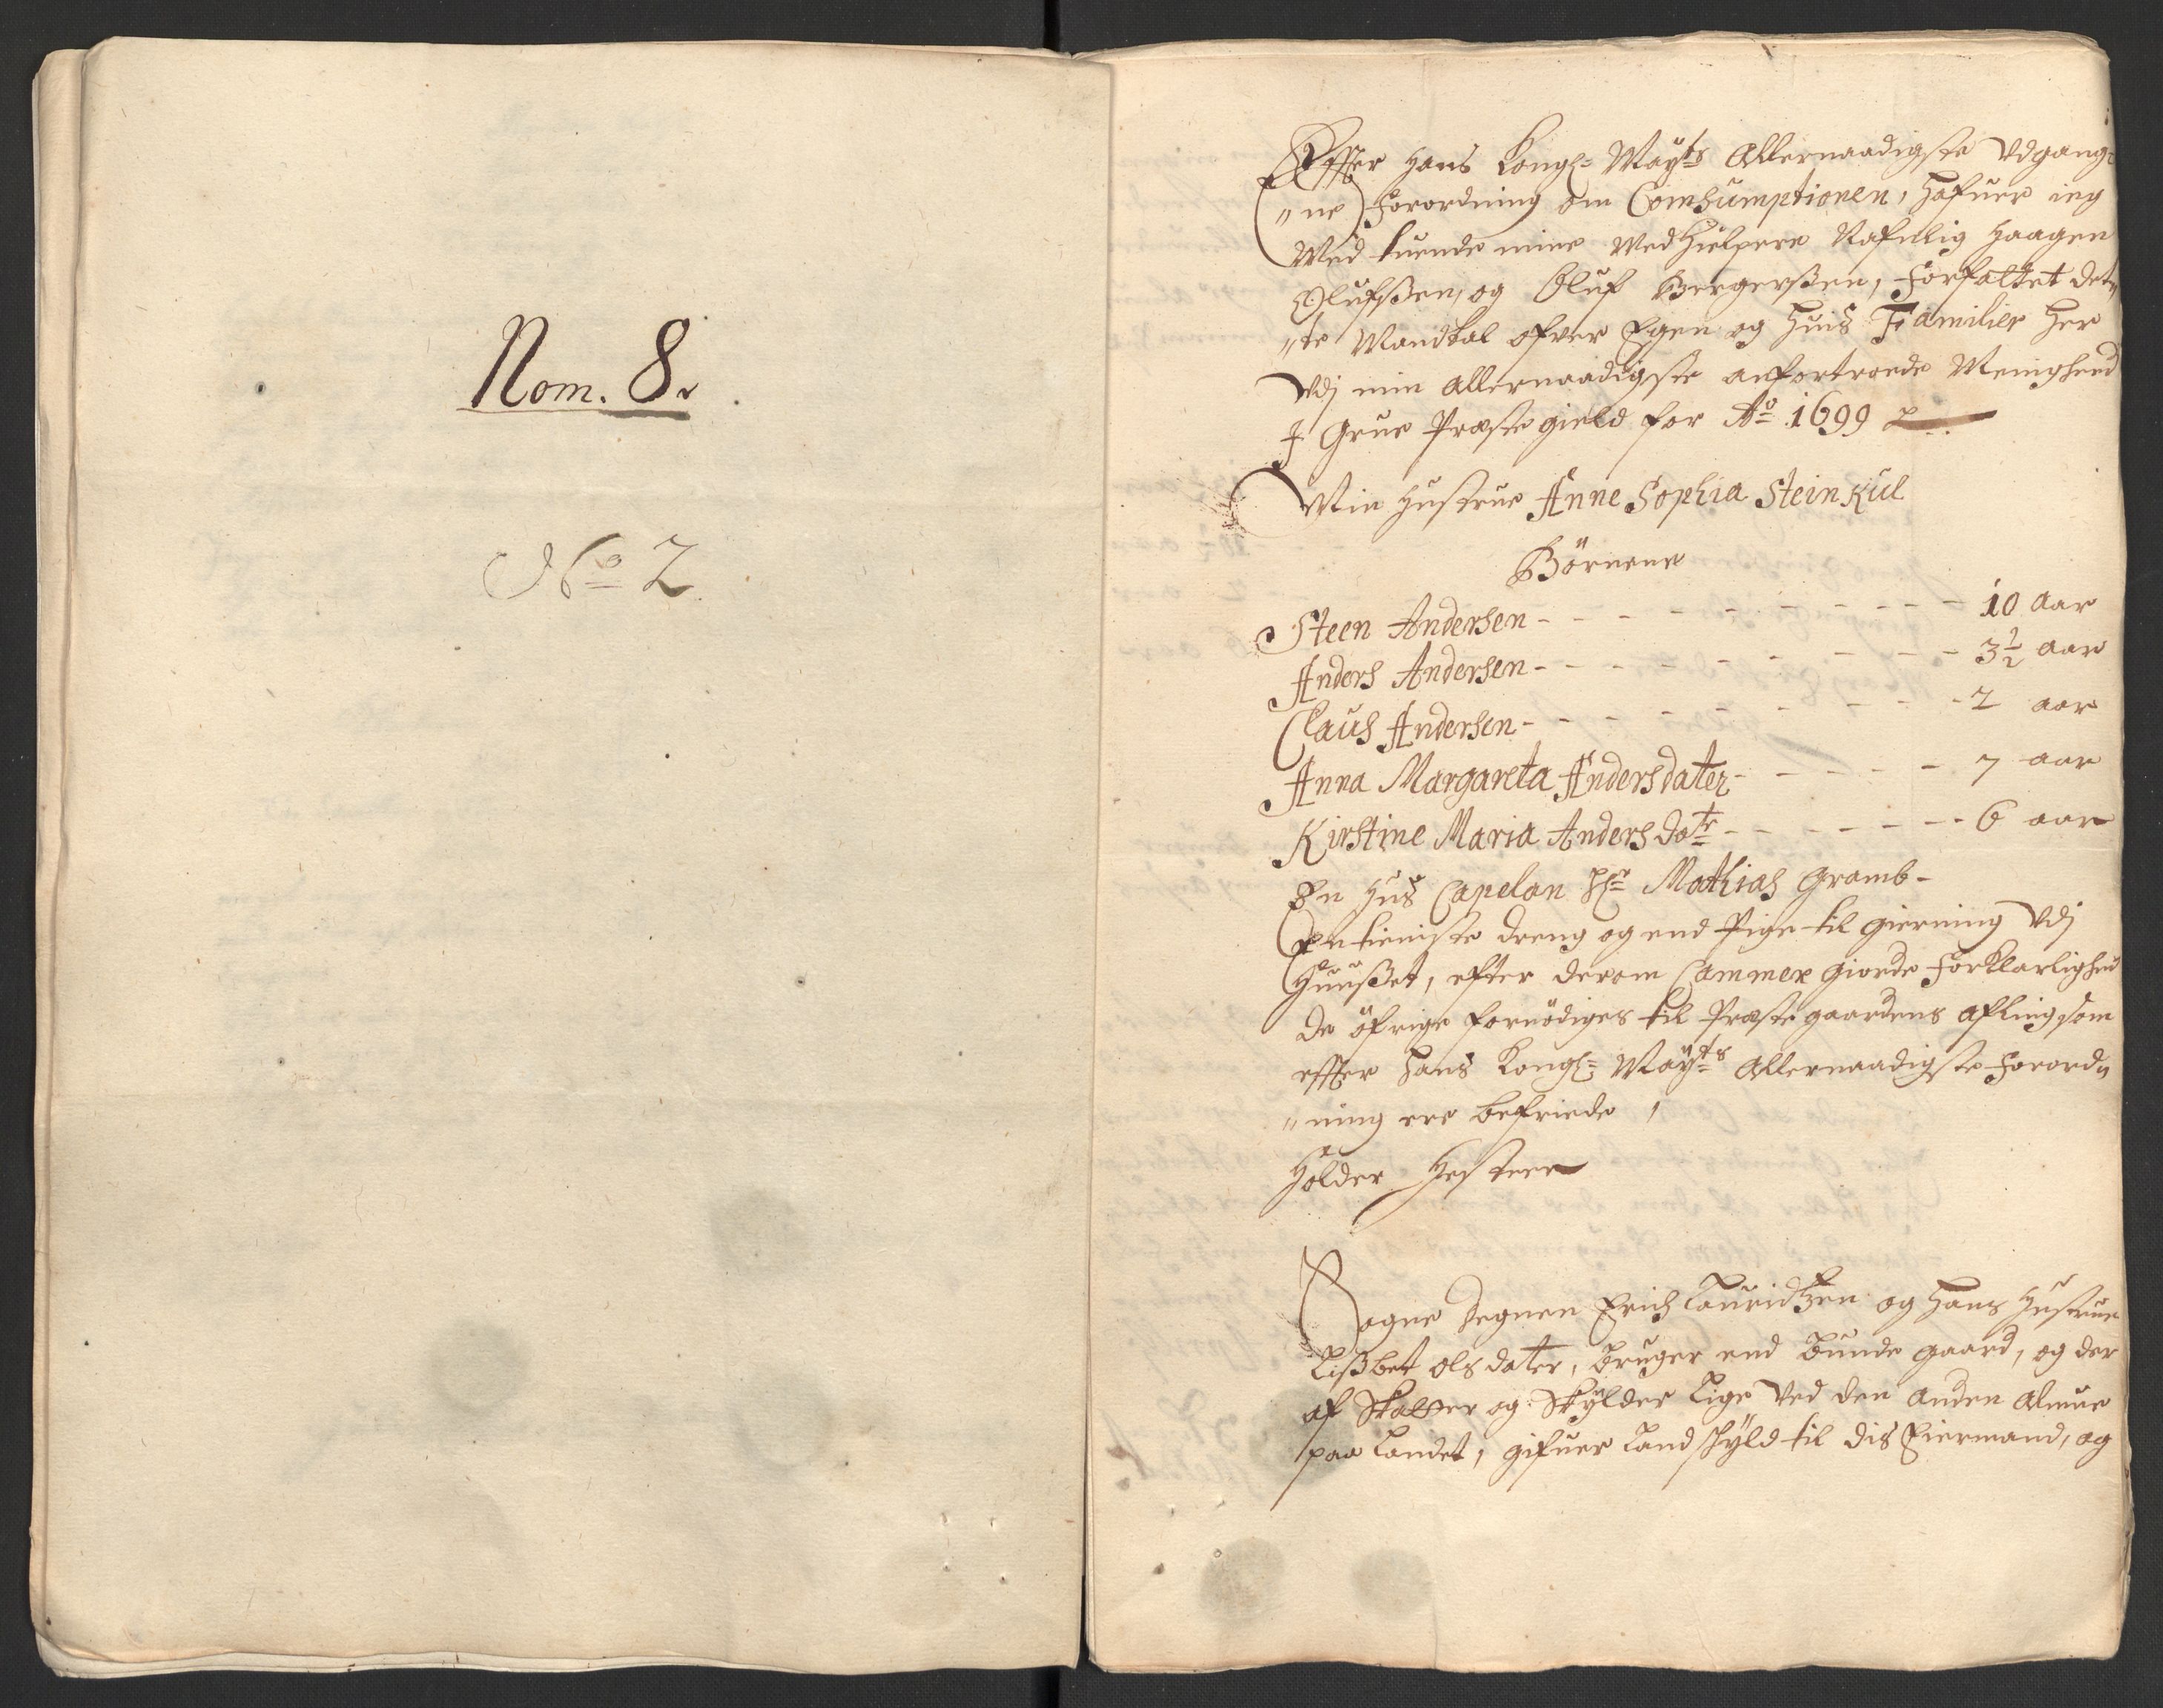 Nom. 8.
No 2
Effter Hans Kongl: Mayts Allernaadigste Udgang-
"ne Forordning om Comsumptionen, hafuer ieg
Med tuende mine Medhielpere Nafnlig Haagen
Olufsen, og Oluf Bergersen, Forfattet det"
"te Mandtal ofver Egen og Huus Familier her
Udj min Allernaadigste anfortroede Menigheed
I Grue Præste gield for Ao 1699
Min Hustrue Anne Sophia Steinkul
Börnene
Steen Andersen - - - - - - - - - - 10 aar
Anders Andersen - - - - - - - - - - 3½ aar
Claus Andersen - - - - - - - - - - 2 aar
Anna Margareta Andersdater - - - - - 7 aar
Kirstine Maria Andersdatr - - - - - - 6 aar
En Huus Capelan Hr Mathias Gramb-
En tieniste dreng og end Pige til gierning Udj
Huusset, efter derom Cammer giorde Forklarlighed
de öfrige fornödiges til Præste gaardens afling som
effter Hans Kongl: Mayts Allernaadigste Forord"
"ning ere befriede,
Holder Hesteer
Sogne Degnen Erich Lauridtzen og Hans Hustrue
Lissbet Olsdater, bruger end bunde gaard, og der
af Skatter og Skylder Lige ved den anden Almue
paa Landet, gifuer Landskyld til dis Eiermand, og